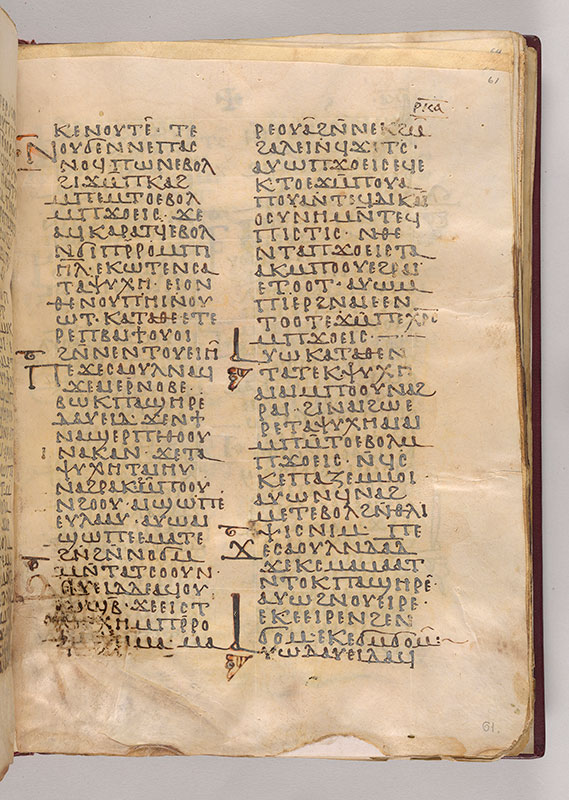 ⲣ̅ⲕ̅ⲁ̅
61
61
ⲕⲉⲛⲟⲩⲧⲉ̄· ⲧⲉ
ⲛⲟⲩϭⲉⲛⲛⲉⲡⲁⲥ
ⲛⲟϥⲡⲱⲛⲉⲃⲟⲗ
ϩⲓϫⲙ̄ⲡⲕⲁϩ
ⲙⲡⲉⲙⲧⲟⲉⲃⲟⲗ
ⲙⲡϫⲟⲉⲓⲥ· ϫⲉ
ⲁϥⲕⲁⲣⲁⲧϥⲉⲃⲟⲗ
ⲛϭⲓⲡⲣⲣⲟⲙⲡⲓ
ⲏⲗ· ⲉⲕⲱⲧⲉⲛⲥⲁ
ⲧⲁⲯⲩⲭⲏ· ⲉⲓⲟⲛ
ⲑⲉⲛⲟⲩⲡⲏⲓⲛⲟⲩ
ⲱⲧ· ⲕⲁⲧⲁⲑⲉⲉⲧⲉ
ⲣⲉⲡⲃⲁⲓϯⲟⲩⲟⲓ
ϩⲛⲛⲉⲛⲧⲟⲩⲉⲓⲏ̄
ⲡⲉϫⲉⲥⲁⲟⲩⲗⲛⲁϥ
ϫⲉⲁⲓⲉⲣⲛⲟⲃⲉ·
ⲃⲱⲕⲡⲁϣⲏⲣⲉ
ⲇⲁⲩⲉⲓⲇ· ϫⲉⲛϯ
ⲛⲁϣⲉⲣⲡⲉⲑⲟⲟⲩ
ⲛⲁⲕⲁⲛ· ϫⲉⲧⲁ
ⲯⲩⲭⲏⲧⲁⲓⲏⲩ
ⲛⲁϩⲣⲁⲕⲙ̄ⲡⲟⲟⲩ
ⲛϩⲟⲟⲩ· ⲁⲓϣⲱⲡⲉ
ⲉⲩⲗⲁⲁⲩ· ⲁⲩⲱⲁⲓ
ϣⲱⲡⲉⲉⲙⲁⲧⲉ
ϩⲛϩⲛⲛⲟϭⲙ
ⲙⲛ̄ⲧⲁⲧⲥⲟⲟⲩⲛ·
ⲇⲁⲩⲉⲓⲇⲇⲉⲁϥⲟⲩ
ⲱϣⲃ· ϫⲉⲉⲓⲥⲧ
ⲭⲏⲙⲡⲣⲣⲟ
ⲙⲁ· ⲙⲁ
ⲣⲉⲟⲩⲁ̄ϩⲛ̄ⲛⲉⲕϩⲙ̄
ϩⲁⲗⲉⲓⲛϥϫⲓⲧⲥ·
ⲁⲩⲱⲡϫⲟⲉⲓⲥⲉϥⲉ
ⲕⲧⲟⲉϫⲙ̄ⲡⲟⲩⲁ
ⲡⲟⲩⲁⲛ̄ⲧⲉϥⲇⲓⲕⲁⲓ
ⲟⲥⲩⲛⲏⲙⲛⲧⲉϥ
ⲡⲓⲥⲧⲓⲥ· ⲛⲑⲉ
ⲛⲧⲁⲡϫⲟⲉⲓⲥⲧⲁ
ⲁⲕⲙⲡⲟⲟⲩⲉϩⲣⲁⲓ
ⲉⲧⲟⲟⲧ· ⲁⲩⲱⲙ
ⲡⲓⲉⲣϩⲛⲁⲓⲉⲉⲛ
ⲧⲟⲟⲧⲉϫⲙ̄ⲡⲉⲭⲣ̄ⲥ̄
ⲙⲡϫⲟⲉⲓⲥ·
ⲁⲩⲱⲕⲁⲧⲁⲑⲉⲛ
ⲧⲁⲧⲉⲕⲯⲩⲭⲏ
ⲁⲓⲁⲓⲙⲡⲟⲟⲩⲛⲁϩ
ϩⲣⲁⲓ· ϩⲓⲛⲁⲓϩⲱⲉ
ⲣⲉⲧⲁⲯⲩⲭⲏⲁⲓⲁⲓ
ⲙⲡⲙ̄ⲧⲟⲉⲃⲟⲗⲙ
ⲡϫⲟⲉⲓⲥ· ⲛϥⲥ
ⲕⲉⲡⲁⲍⲉⲙⲙⲟⲓ
ⲁⲩⲱⲛϥⲛⲁϩ
ⲙⲉⲧⲉⲃⲟⲗϩⲛⲑⲗⲓ
ⲯⲓⲥⲛⲓⲙ· ⲡⲉ
ϫⲉⲥⲁⲟⲩⲗⲛⲇⲁⲇ
ϫⲉⲕⲥⲙⲁⲙⲁⲁⲧ
ⲛⲧⲟⲕⲡⲁϣⲏⲣⲉ̄·
ⲁⲩⲱϩⲛⲟⲩⲉⲓⲣⲉ·
ⲉⲕⲉⲉⲓⲣⲉⲛϩⲉⲛ
ϭⲟⲙⲉⲕⲉϭⲙϭⲟⲙ·
ⲁⲩⲱⲇⲁⲩⲉⲓⲇⲁϥ
61.